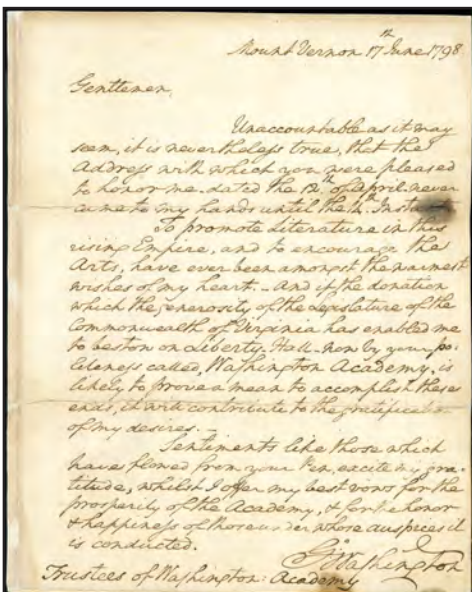 Mount Vernon 17th June 1798
Gentlemen,
Unaccountable as it may
seem, it is nevertheless true, that the
Address with which you were pleased
to honor me dated the 12th of April never
came to my hands until the 14th Instant
To promote Literature in this
rising Empire, and to encourage the
Arts, have ever been amongst the warmest
wishes of my heart. – And if the donation
which the generosity of the Legislature of the
Commonwealth of Virginia has enabled me
to bestow on Liberty-Hall – now by your po-
liteness called, Washington Academy, is
likely to prove a mean to accomplish these
ends, it will contribute to the gratification
of my desires. –
Sentiments like those which
have flowed from your Pen, excite my gra-
titude, whilst I offer my best vows for the
prosperity of the Academy, & for the honor
& happiness of those under whose auspices it
is conducted.
Go Washington
Trustees of Washington: Academy